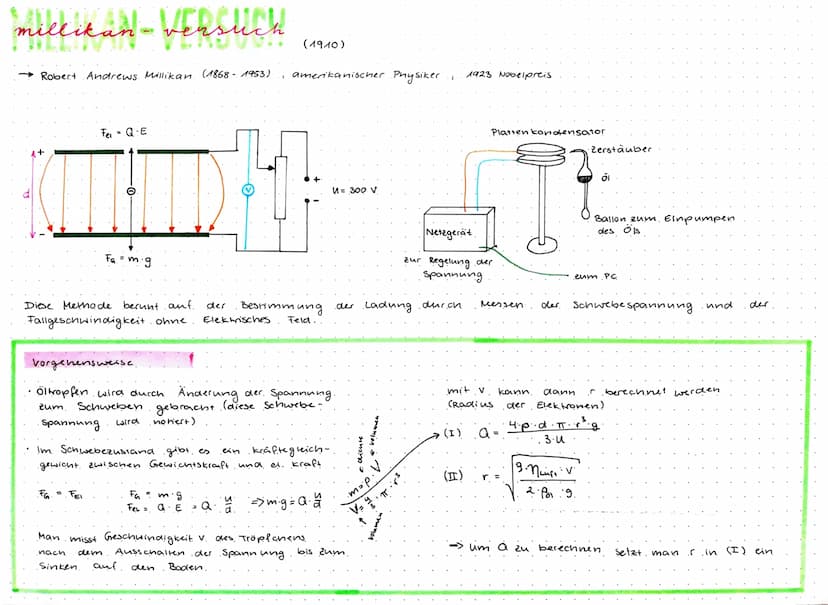 MILLIKAN-VERSUCH
millikan-versuch (1910)
→ Robert Andrews Millikan (1868-1953), amerikanischer Physiker, 1923 Nobelpreis
F_el = Q·E
+
d
-
V
+
-
U = 300 V
F_G = m·g
Plattenkondensator
Zerstäuber
Öl
Ballon zum Einpumpen
des Öls
Netzgerät
zur Regelung der
Spannung
zum PC
Diese Methode beruht auf der Bestimmung der Ladung durch Messen der Schwebespannung und der
Fallgeschwindigkeit ohne Elektrisches Feld.
Vorgehensweise
· Öltropfen wird durch Änderung der Spannung
zum Schweben gebracht (diese Schwebe-
spannung wird notiert)
· Im Schwebezustand gibt es ein Kräftegleich-
gewicht zwischen Gewichtskraft und el. Kraft
F_G = F_El
F_G = m·g
F_EL = Q·E = Q· U/d => m·g = Q· U/d
m = ρ·V
dichte
Volumen
V = 4/3·π·r³
Volumen
Man misst Geschwindigkeit v des Tröpfchens
nach dem Ausschalten der Spannung bis zum
Sinken auf den Boden.
mit v kann dann r berechnet werden
(Radius der Elektronen)
(I) Q = 4·ρ·d·π·r³·g / 3·U
(II) r = √(9·η_Luft·v / 2·ρ_Öl·g)
→ um Q zu berechnen setzt man r in (I) ein